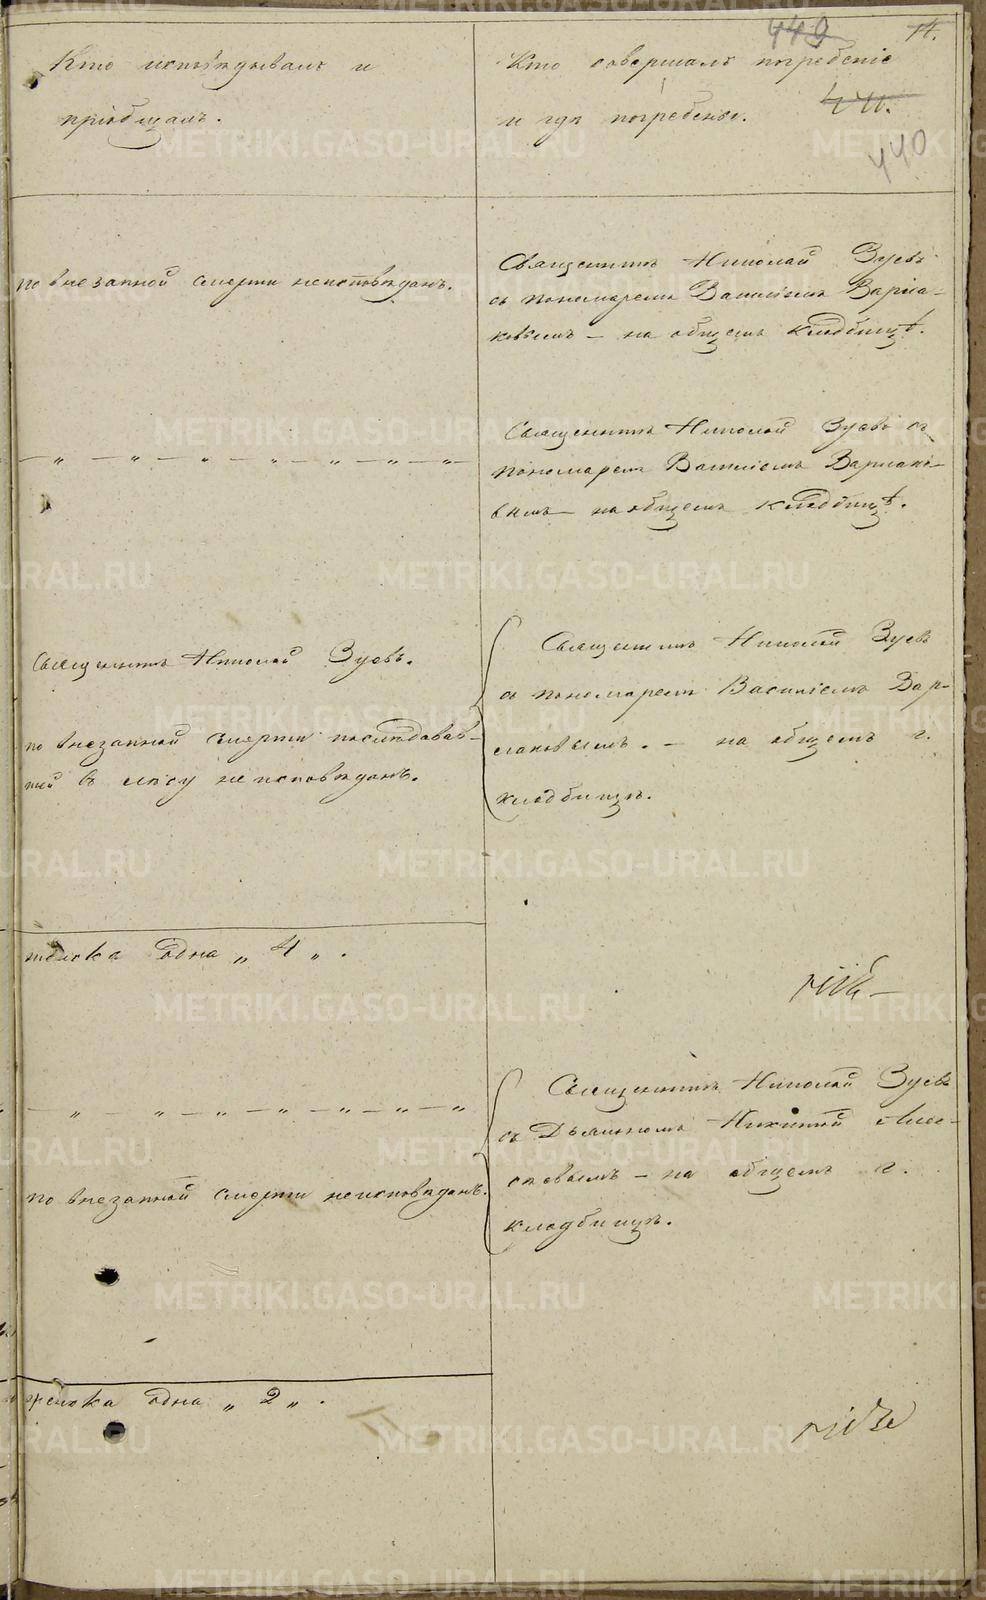 449
14.
Кто исповѣдывалъ и
пріобщалъ.
Кто совершалъ погребеніе
и гдѣ погребены.
441.
440
по внезапной смерти неисповѣданъ.
Священникъ Николай Зуевъ
съ пономаремъ Василіемъ Варла-
ковымъ — на общемъ кладбищѣ.
— „ — „ — „ — „ — „ — „ — „ —
Священникъ Николай Зуевъ съ
пономаремъ Василіемъ Варлако-
вымъ — на общемъ кладбищѣ.
Священникъ Николай Зуевъ.
по внезапной смерти последовав-
шей въ лѣсу неисповѣданъ.
Священникъ Николай Зуевъ
съ пономаремъ Василіемъ Вар-
лаковымъ. — на общемъ г.
кладбищѣ.
женска одна „ 4 „ .
— „ — „ — „ — „ — „ — „ — „
по внезапной смерти неисповѣданъ.
Священникъ Николай Зуевъ
съ Дьячкомъ Никитой
на общемъ г.
кладбищѣ.
женска одна „ 2 „ .
METRIKI.GASO-URAL.RU